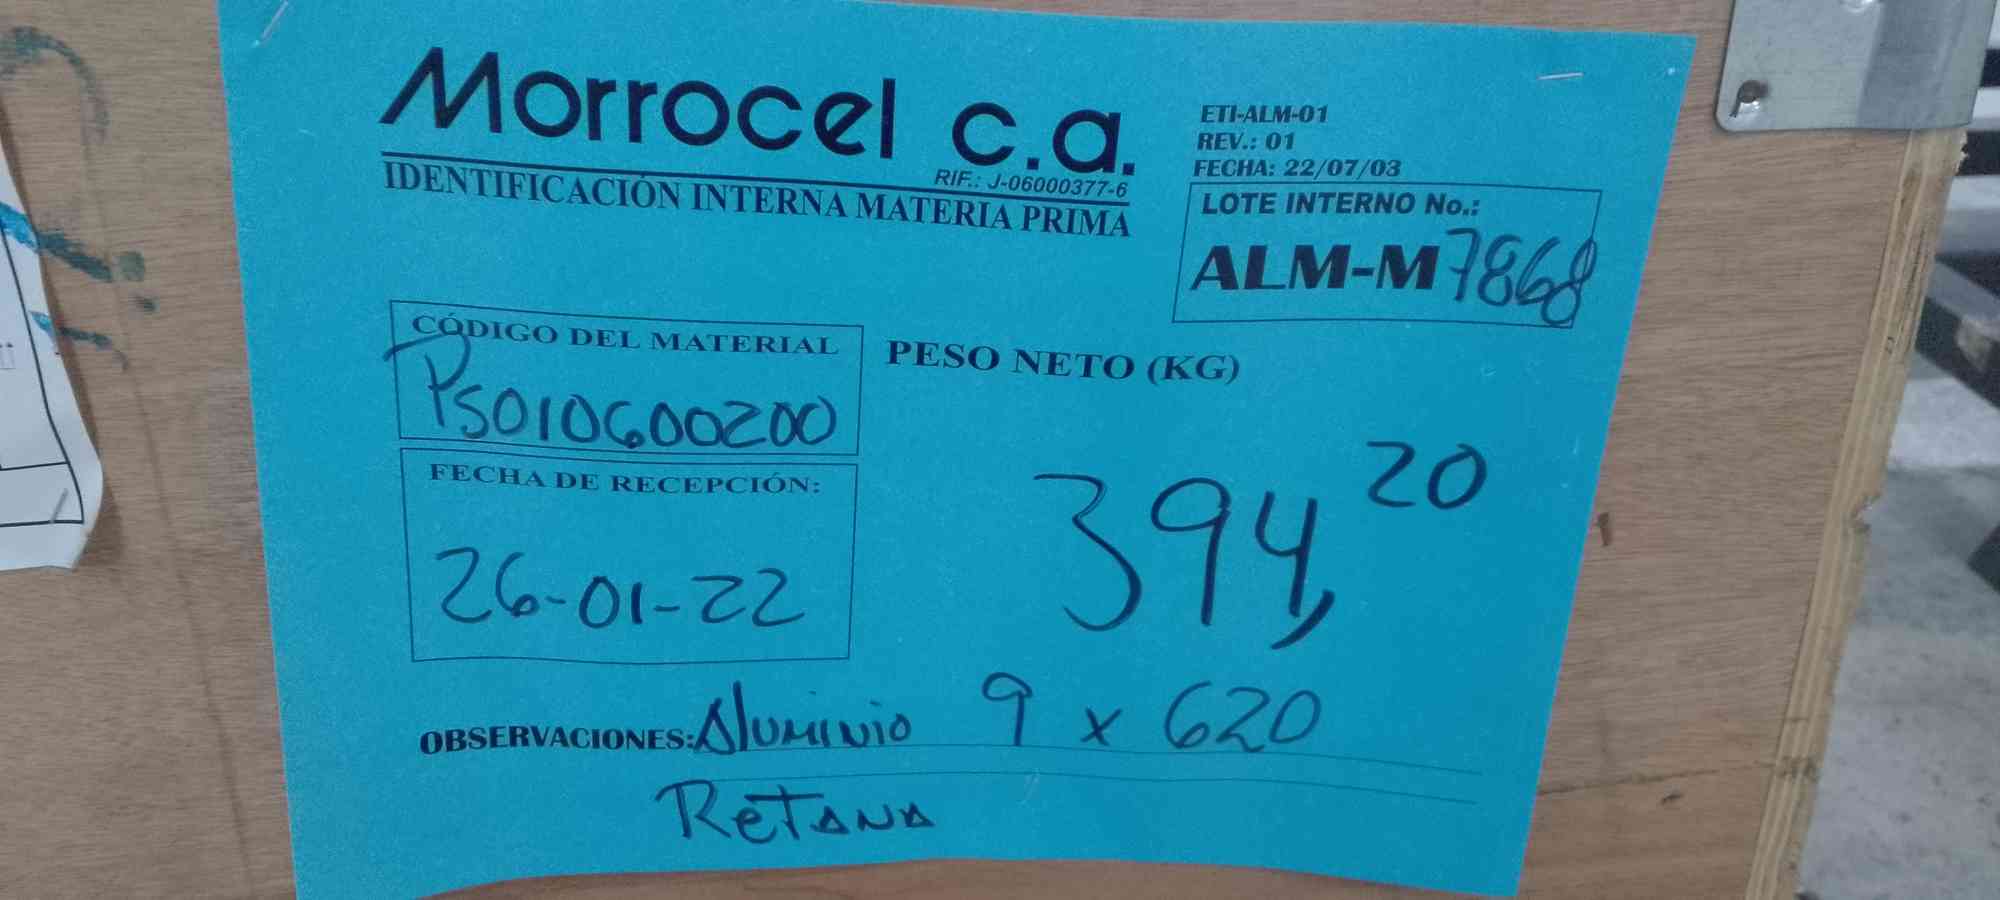 Morrocel c.a.
RIF.: J-06000377-6
IDENTIFICACIÓN INTERNA MATERIA PRIMA
ETI-ALM-01
REV.: 01
FECHA: 22/07/03
LOTE INTERNO No.:
ALM-M 7868
CÓDIGO DEL MATERIAL
PS010600200
PESO NETO (KG)
394,20
FECHA DE RECEPCIÓN:
26-01-22
OBSERVACIONES: Aluminio 9 x 620
Retana